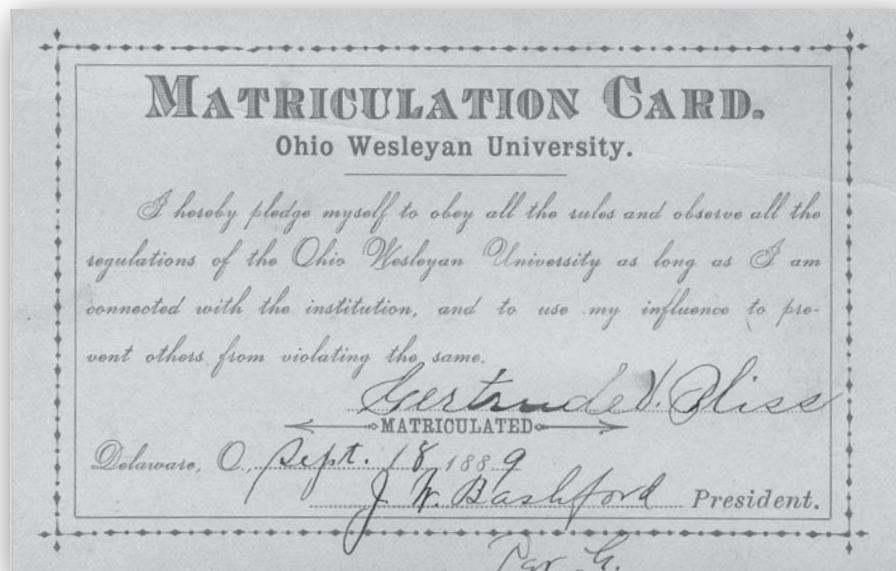 MATRICULATION CARD.
Ohio Wesleyan University.
I hereby pledge myself to obey all the rules and observe all the
regulations of the Ohio Wesleyan University as long as I am
connected with the institution, and to use my influence to pre-
vent others from violating the same.
Gertrude V. Bliss
MATRICULATED
Delaware, O., Sept. 18 1889
J. W. Bashford President.
Per G.